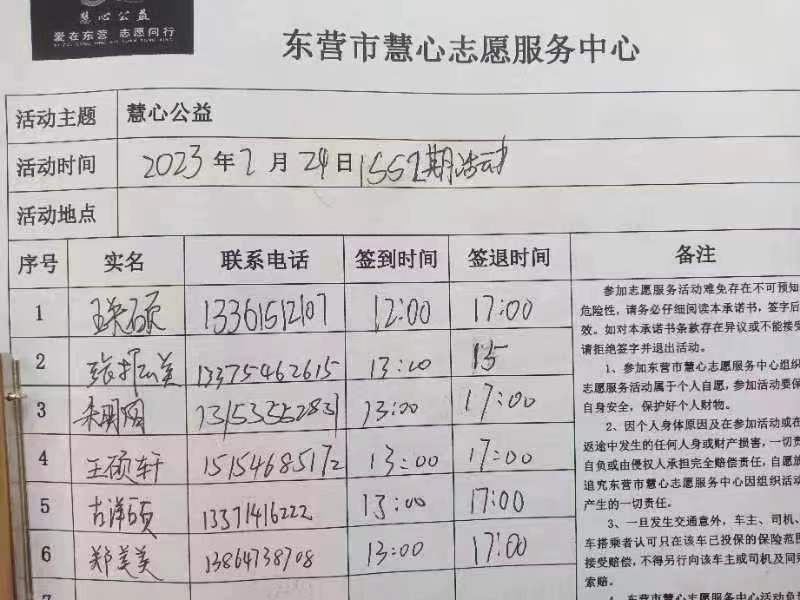 慧心公益
爱在东营 志愿同行
东营市慧心志愿服务中心
活动主题 慧心公益
活动时间 2023年2月24日1552期活动
活动地点
序号 实名 联系电话 签到时间 签退时间 备注
1 13361512107 12:00 17:00
2 张振美 13375462615 13:00 15
3 13153552831 13:00 17:00
4 王硕轩 15154685172 13:00 17:00
5 古洋硕 13371416222 13:00 17:00
6 郑美美 13864738708 13:00 17:00
参加志愿服务活动难免存在不可预知
危险性，请务必仔细阅读本承诺书，签字后
效。如对本承诺书条款存在异议或不能接受
请拒绝签字并退出活动。
1、参加东营市慧心志愿服务中心组织
志愿服务活动属于个人自愿，参加活动要保
自身安全，保护好个人财物。
2、因个人身体原因及在参加活动或在
返途中发生的任何人身或财产损害，一切责
自负或由侵权人承担完全赔偿责任，自愿放
追究东营市慧心志愿服务中心因组织活动
产生的一切责任。
3、一旦发生交通意外，车主、司机、
车搭乘者认可只在该车已投保的保险范围
接受赔偿，不得另行向该车主或司机及同乘
索赔。
4、东营市慧心志愿服务中心活动负责